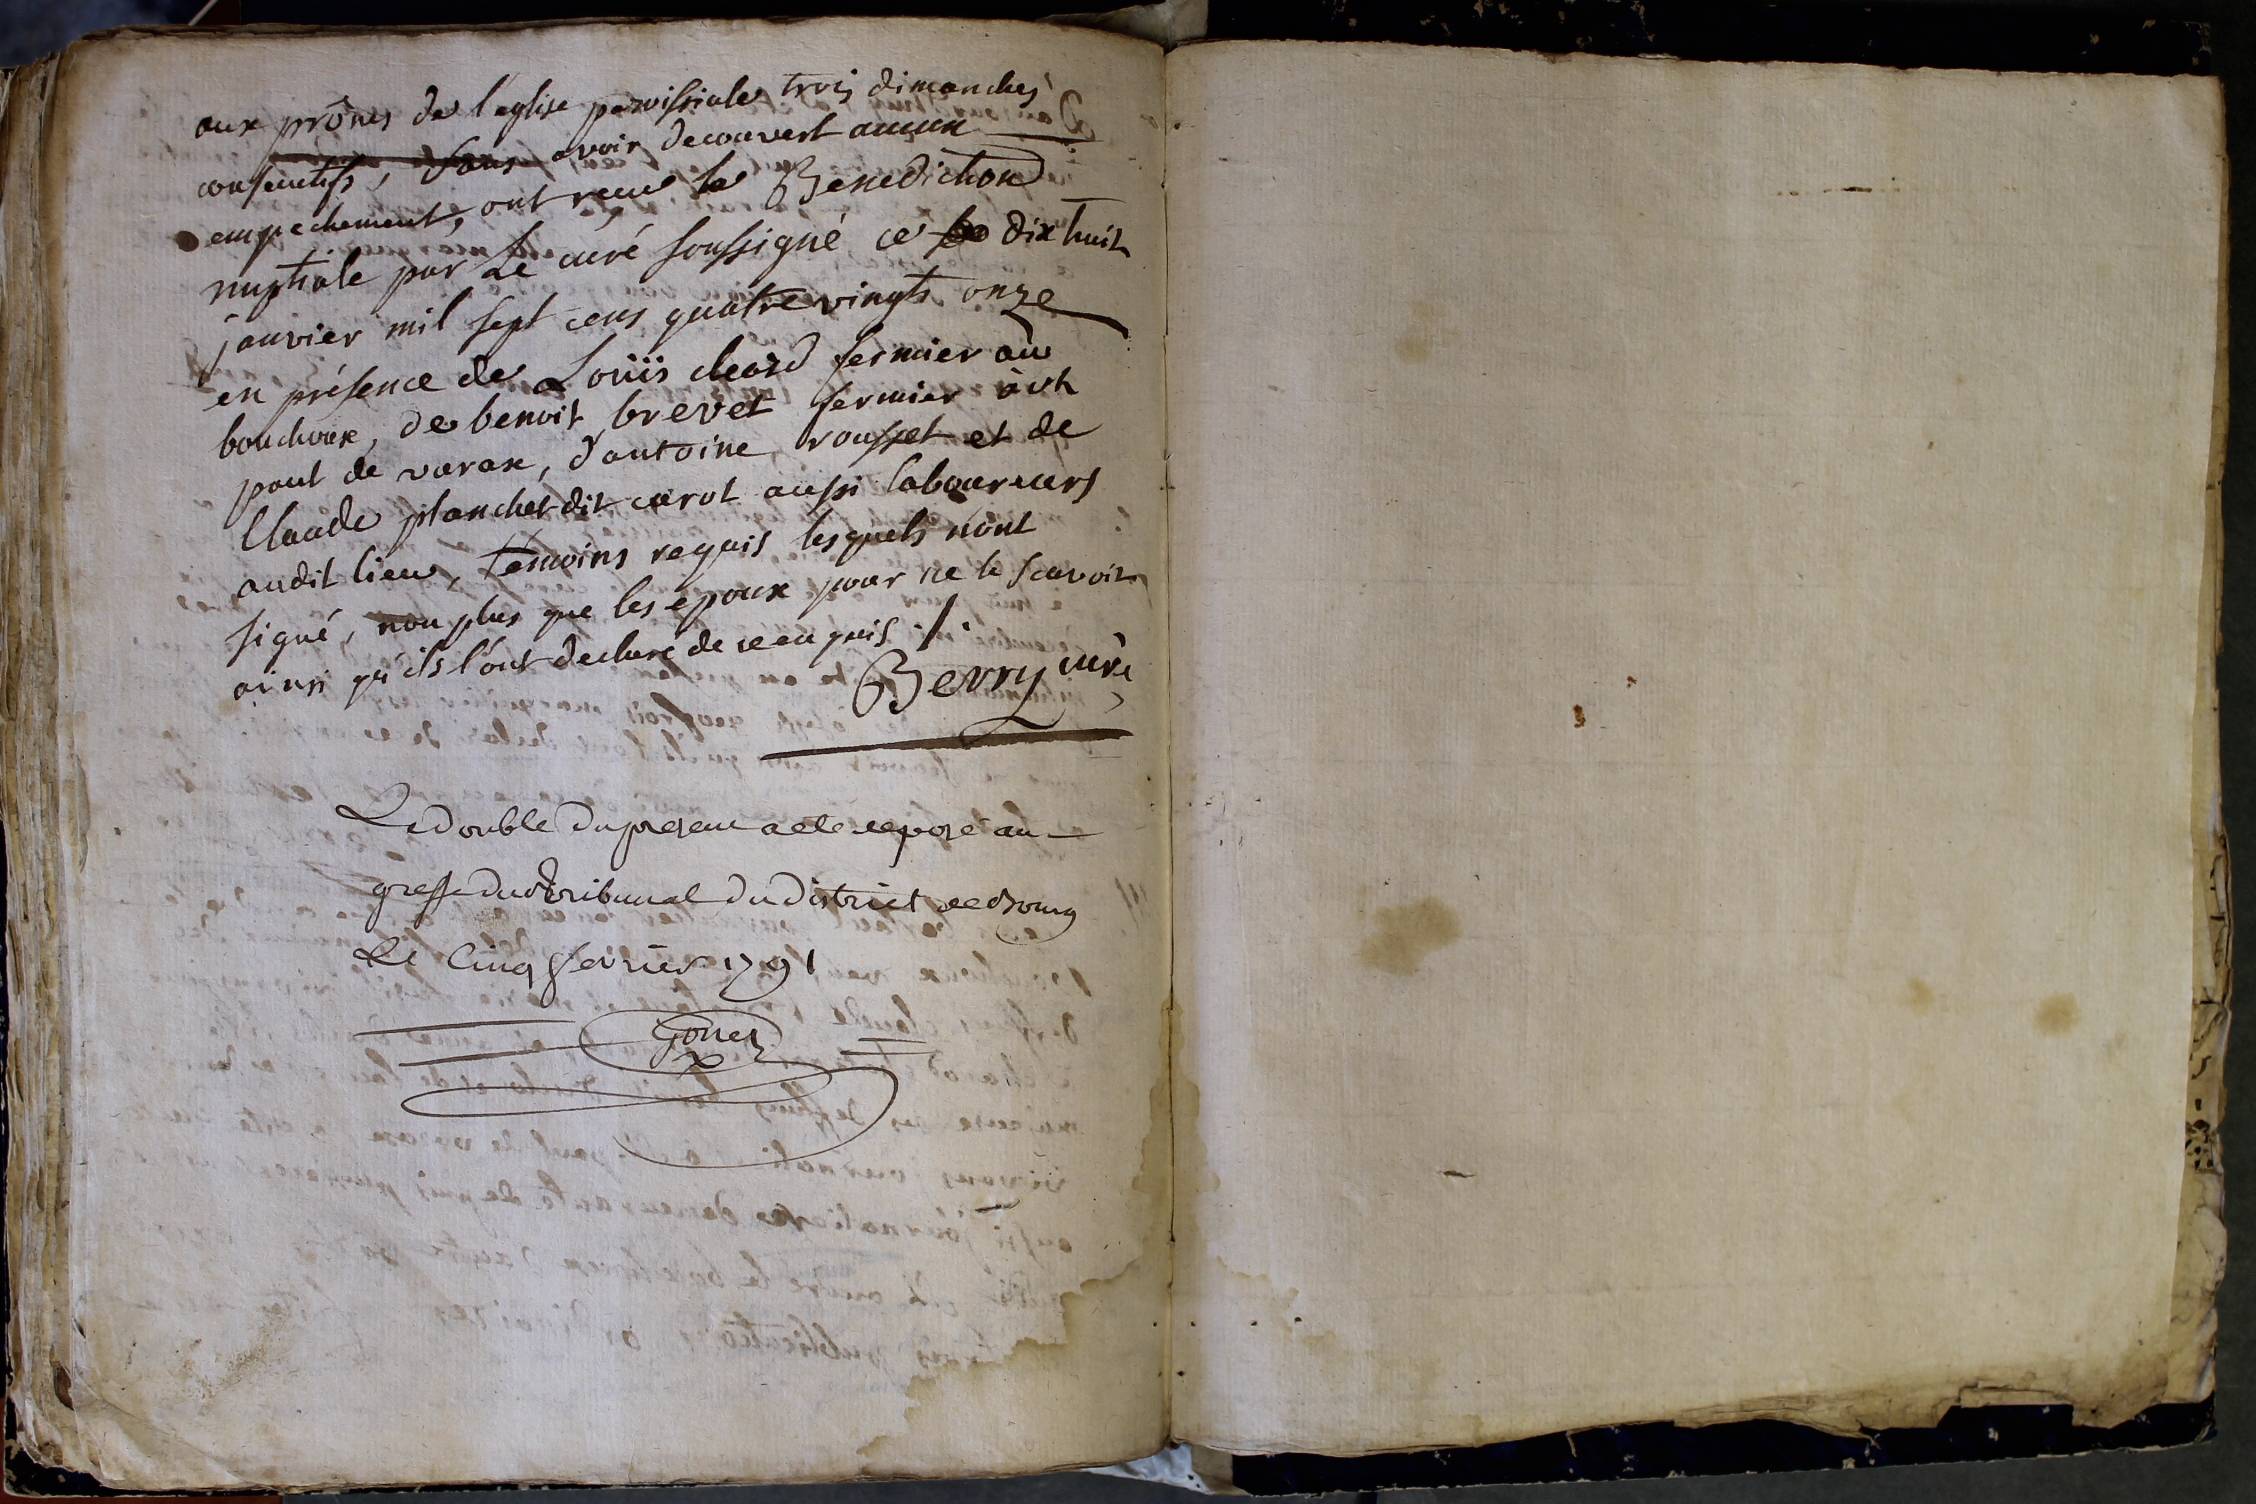 aux prônes de l'eglise paroissiale trois dimanches
consecutifs, sans avoir decouvert aucun
empechement, ont recu la Benediction
nuptiale par Le curé soussigné ce dix huit
janvier mil sept cens quatre vingts onze
en présence de Loüis cleard fermier au
bouchoux, de benoit brevet fermier à st
paul de varax, d'antoine rousset et de
Claude planchet dit carot aussi laboureurs
audit lieu, temoins requis lesquels n'ont
signé, non plus que les epoux pour ne le scavoir
ainsi qu'ils l'ont declare de ce enquis ./.
Berry curé
Le double du present a ete deposé au
greffe du tribunal du District de Bourg
Le Cinq fevrier 1791